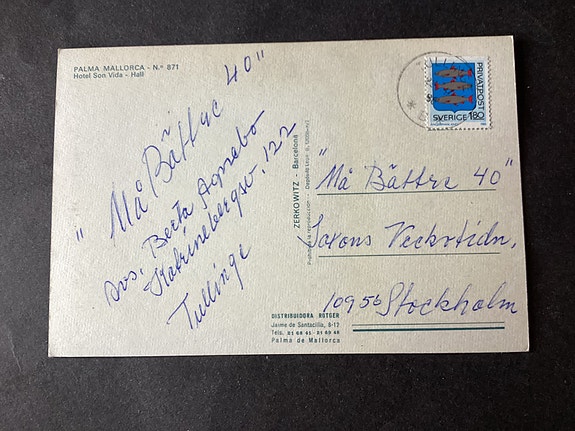 PALMA MALLORCA - N.º 871
Hotel Son Vida - Hall
"Må Bättre 40"
Avs. Berta Agnebo
Katrinebergsv. 122
Tullinge
ZERKOWITZ - Barcelona
DISTRIBUIDORA ROTGER
Jaime de Santacilia, 8-12
Palma de Mallorca
PRIVATPOST
SVERIGE 180
"Må Bättre 40"
Saxons Veckotidn.
10956 Stockholm